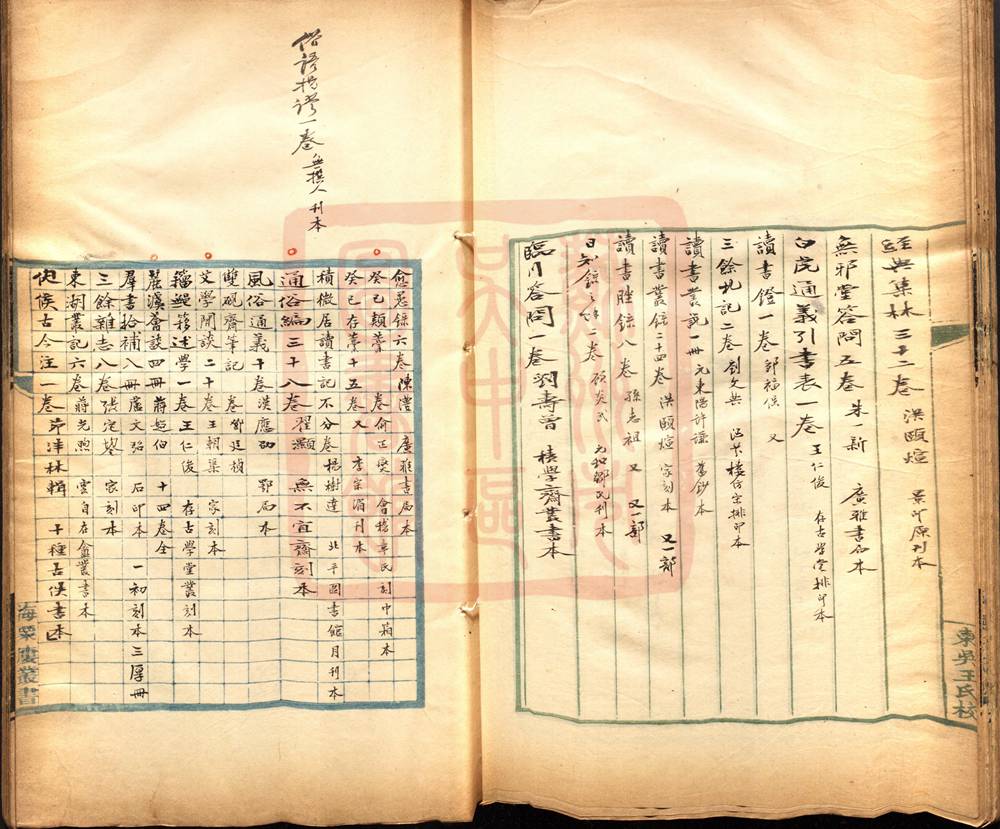 經典集林三十二卷 洪頤煊 景印原刊本
無邪堂答問五卷 朱一新 廣雅書局本
白虎通義引書表一卷 王仁俊 存古學堂排印本
讀書鐙一卷 鄒福保 又
三餘札記二卷 劉文典 排印本
讀書叢說一冊 元東陽許謙 舊鈔本
讀書叢錄二十四卷 洪頤煊 家刻本 又一部
讀書脞錄八卷 孫志祖 又 又一部
日知錄之餘二卷 顧炎武 元和鄒氏刊本
臨川答問一卷 劉壽曾 積學齋叢書本
東吳王氏校
俗語 一卷 無撰人 刊本
愈愚錄六卷 廣雅書局本
癸巳類藁 卷 俞正燮 會稽章氏刻巾箱本
癸巳存藁十五卷 又 李宗湄刊本
積微居讀書記不分卷 楊樹達 北平圖書館月刊本
通俗編三十八卷 翟灝 無不宜齋刻本
風俗通義十卷 漢應劭 鄂局本
雙硯齋筆記 卷 鄧廷楨
文學閒談二十卷 王朝渠 家刻本
籀鄦簃述學一卷 王仁俊 存古學堂叢刻本
麗濱薈談四冊 蔣超伯 十四卷全
羣書拾補八冊 盧文弨 石印本 一初刻本三厚冊
三餘雜志八卷 張定鋆 家刻本
東湖叢記六卷 蔣光煦 雲自在龕叢書本
伏侯古今注一卷 茆泮林輯 十種古佚書本
海粟廔叢書